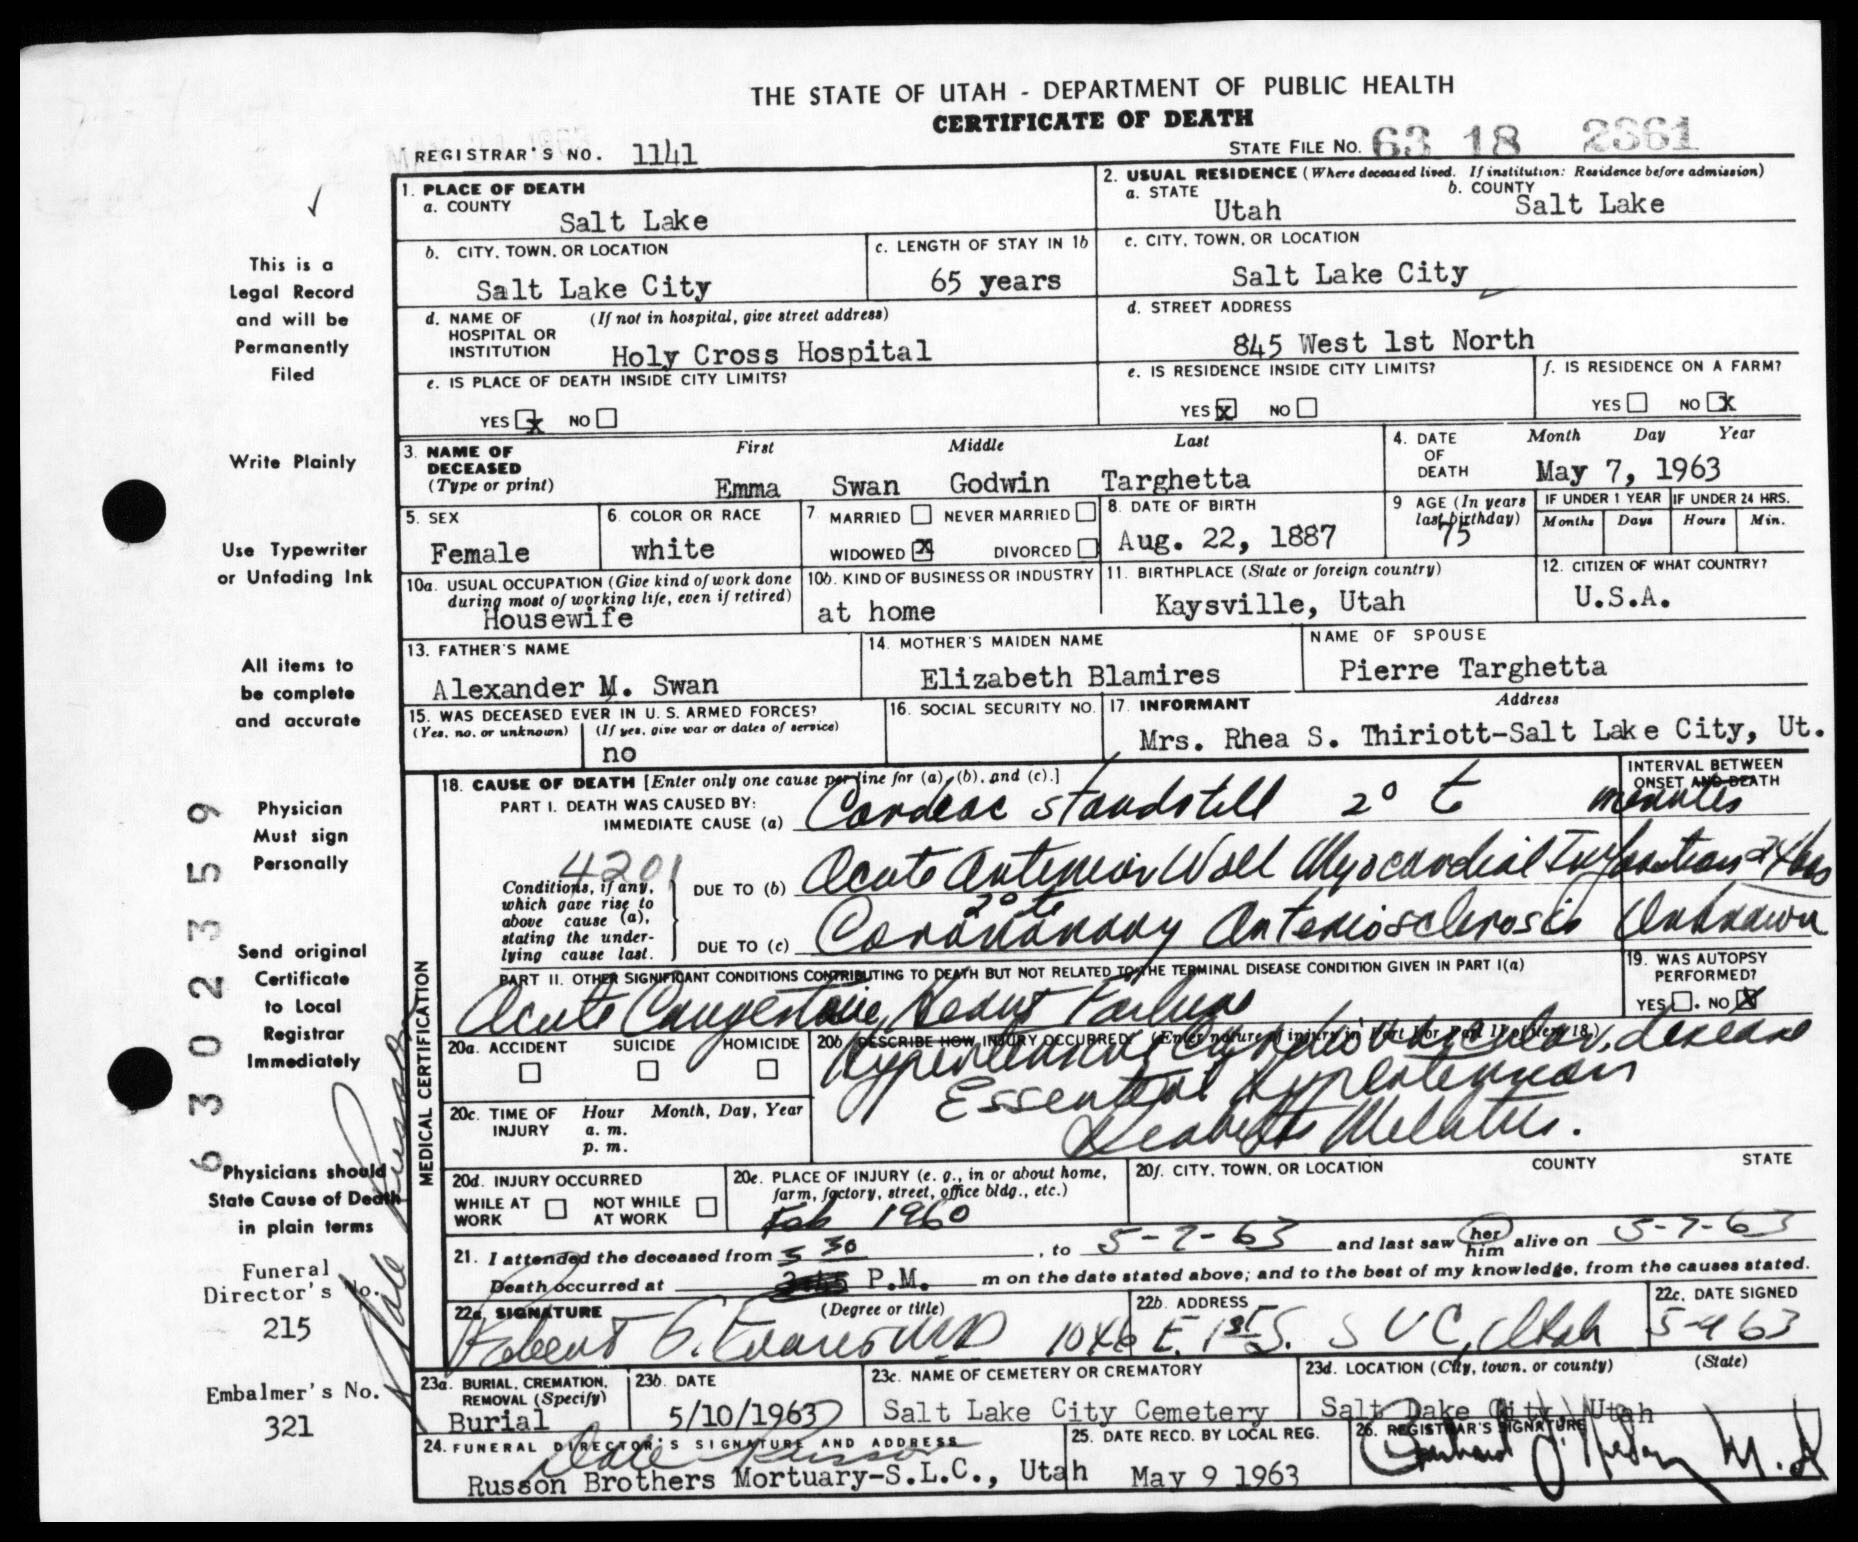 THE STATE OF UTAH - DEPARTMENT OF PUBLIC HEALTH
CERTIFICATE OF DEATH
REGISTRAR'S NO. 1141
STATE FILE NO. 63 18 2361
This is a
Legal Record
and will be
Permanently
Filed
Write Plainly
Use Typewriter
or Unfading Ink
All items to
be complete
and accurate
Physician
Must sign
Personally
Send original
Certificate
to Local
Registrar
Immediately
Physicians should
State Cause of Death
in plain terms
Funeral
Director's No.
215
Embalmer's No.
321
6302359
Dale Russon
1. PLACE OF DEATH
a. COUNTY
Salt Lake
2. USUAL RESIDENCE (Where deceased lived. If institution: Residence before admission)
a. STATE Utah b. COUNTY Salt Lake
b. CITY, TOWN, OR LOCATION
Salt Lake City
c. LENGTH OF STAY IN 1b
65 years
c. CITY, TOWN, OR LOCATION
Salt Lake City
d. NAME OF HOSPITAL OR INSTITUTION (If not in hospital, give street address)
Holy Cross Hospital
d. STREET ADDRESS
845 West 1st North
e. IS PLACE OF DEATH INSIDE CITY LIMITS?
YES x NO
e. IS RESIDENCE INSIDE CITY LIMITS?
YES x NO
f. IS RESIDENCE ON A FARM?
YES NO x
3. NAME OF DECEASED (Type or print)
First Middle Last
Emma Swan Godwin Targhetta
4. DATE OF DEATH
Month Day Year
May 7, 1963
5. SEX
Female
6. COLOR OR RACE
white
7. MARRIED NEVER MARRIED
WIDOWED x DIVORCED
8. DATE OF BIRTH
Aug. 22, 1887
9 AGE (In years last birthday)
75
IF UNDER 1 YEAR IF UNDER 24 HRS.
Months Days Hours Min.
10a. USUAL OCCUPATION (Give kind of work done during most of working life, even if retired)
Housewife
10b. KIND OF BUSINESS OR INDUSTRY
at home
11. BIRTHPLACE (State or foreign country)
Kaysville, Utah
12. CITIZEN OF WHAT COUNTRY?
U.S.A.
13. FATHER'S NAME
Alexander M. Swan
14. MOTHER'S MAIDEN NAME
Elizabeth Blamires
NAME OF SPOUSE
Pierre Targhetta
15. WAS DECEASED EVER IN U. S. ARMED FORCES?
(Yes, no, or unknown) (If yes, give war or dates of service)
no
16. SOCIAL SECURITY NO.
17. INFORMANT Address
Mrs. Rhea S. Thiriott-Salt Lake City, Ut.
MEDICAL CERTIFICATION
18. CAUSE OF DEATH [Enter only one cause per line for (a), (b), and (c).]
INTERVAL BETWEEN ONSET AND DEATH
PART I. DEATH WAS CAUSED BY:
IMMEDIATE CAUSE (a) Cardiac standstill 2° to minutes
4201
Conditions, if any, which gave rise to above cause (a), stating the underlying cause last.
DUE TO (b) Acute Anterior Wall Myocardial Infarction 24 hrs
2° to
DUE TO (c) Coronary Arteriosclerosis Unknown
PART II. OTHER SIGNIFICANT CONDITIONS CONTRIBUTING TO DEATH BUT NOT RELATED TO THE TERMINAL DISEASE CONDITION GIVEN IN PART I(a)
Acute Congestive Heart Failure
19. WAS AUTOPSY PERFORMED?
YES NO X
20a. ACCIDENT SUICIDE HOMICIDE
20b. DESCRIBE HOW INJURY OCCURRED. (Enter nature of injury in Part I or Part II of item 18.)
Hypertensive Cardiovascular disease
Essential Hypertension
Diabetes Mellitus.
20c. TIME OF INJURY
Hour Month, Day, Year
a. m.
p. m.
20d. INJURY OCCURRED
WHILE AT WORK NOT WHILE AT WORK
20e. PLACE OF INJURY (e. g., in or about home, farm, factory, street, office bldg., etc.)
20f. CITY, TOWN, OR LOCATION COUNTY STATE
Feb 1960
21. I attended the deceased from , to 5-7-63 and last saw her him alive on 5-7-63
3 30
Death occurred at P.M. m on the date stated above; and to the best of my knowledge, from the causes stated.
22a. SIGNATURE (Degree or title)
Robert G. Evans MD
22b. ADDRESS
1046 E. 1st S. SLC, Utah
22c. DATE SIGNED
5-9 63
23a. BURIAL, CREMATION, REMOVAL (Specify)
Burial
23b. DATE
5/10/1963
23c. NAME OF CEMETERY OR CREMATORY
Salt Lake City Cemetery
23d. LOCATION (City, town, or county) (State)
Salt Lake City, Utah
24. FUNERAL DIRECTOR'S SIGNATURE AND ADDRESS
Dale Russon
Russon Brothers Mortuary-S.L.C., Utah
25. DATE RECD. BY LOCAL REG.
May 9 1963
26. REGISTRAR'S SIGNATURE
M.D